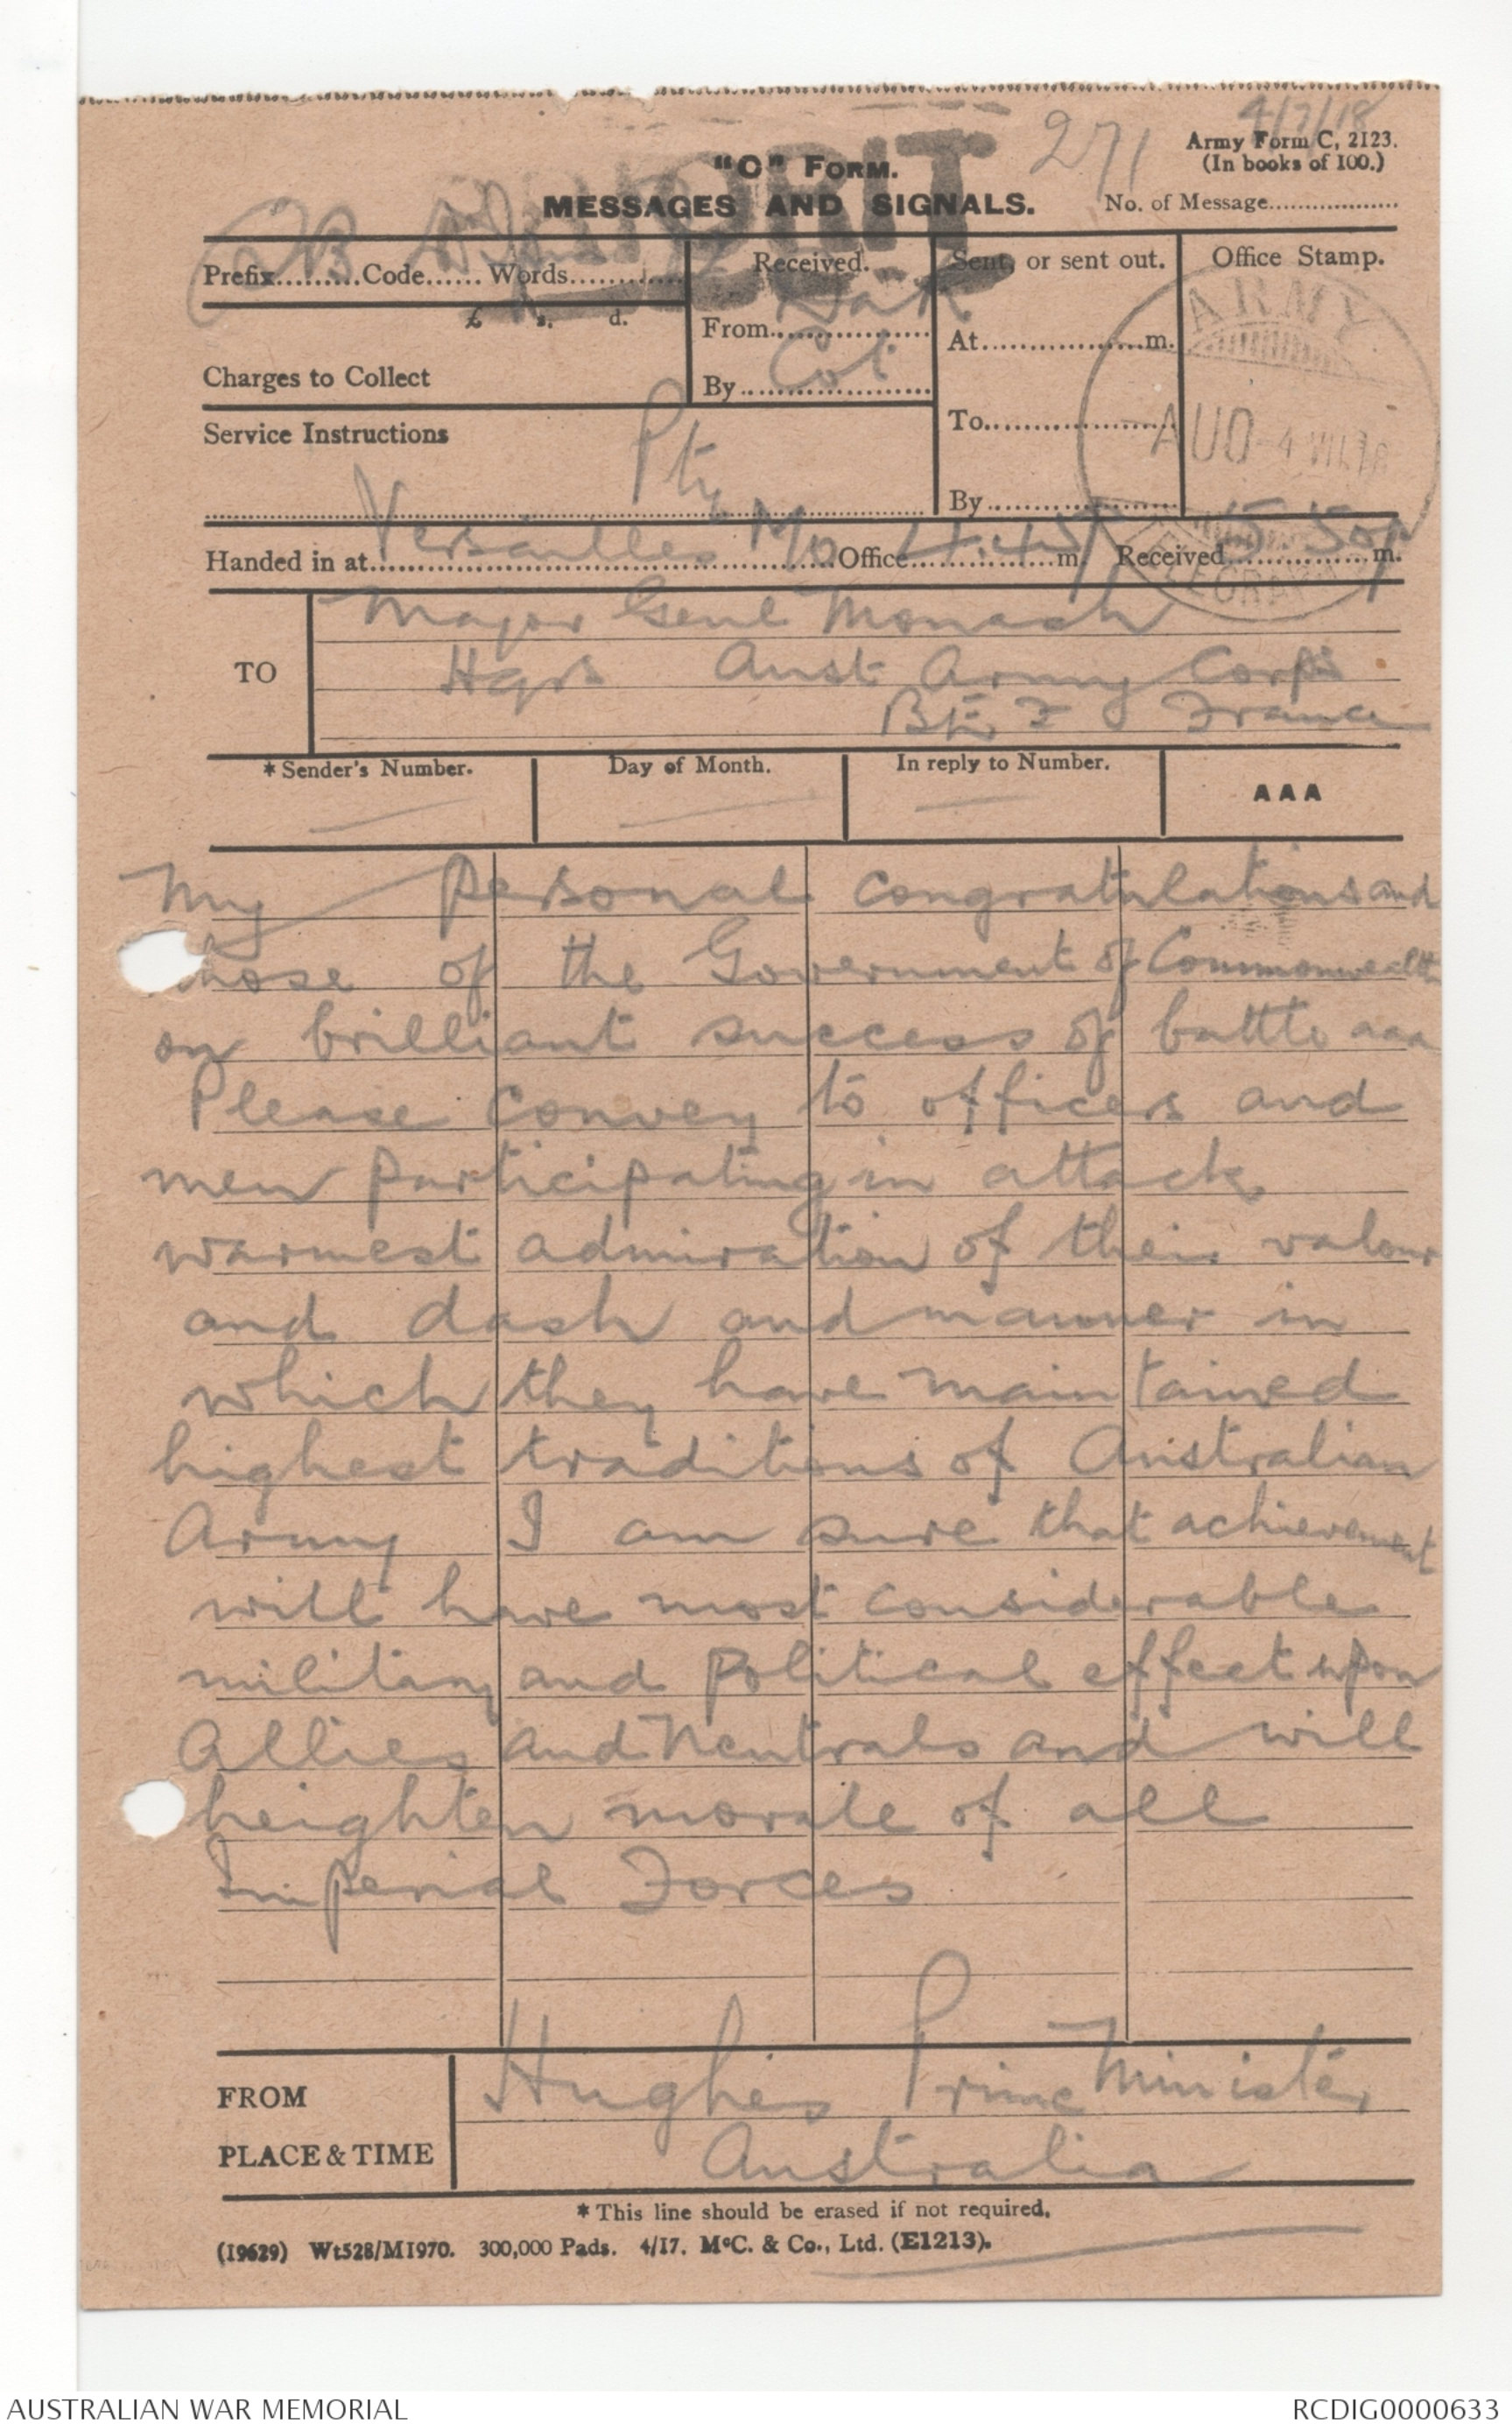 4/7/18
271
Army Form C, 2123.
(In books of 100.)
"C" FORM.
MESSAGES AND SIGNALS.
No. of Message
PRIORIT
Prefix Code Words
£ s. d.
Charges to Collect
Received.
From
By Col
Sent, or sent out.
At m.
To
By
Office Stamp.
ARMY
AU0
Service Instructions
Pty
Handed in at Versailles M/O Office 4.45p m. Received 5.50p m.
TO
Major Genl Monash
Hqrs Aust Army Corps
BEF France
*Sender's Number.
Day of Month.
In reply to Number.
AAA
My personal congratulations and
those of the Government of Commonwealth
on brilliant success of battle aaa
Please convey to officers and
men participating in attack
warmest admiration of their valour
and dash and manner in
which they have maintained
highest traditions of Australian
Army I am sure that achievement
will have most considerable
military and political effect upon
Allies and Neutrals and will
heighten morale of all
Imperial Forces
FROM
PLACE & TIME
Hughes Prime Minister
Australia
*This line should be erased if not required.
(19629) Wt528/M1970. 300,000 Pads. 4/17. McC. & Co., Ltd. (E1213).
AUSTRALIAN WAR MEMORIAL
RCDIG0000633